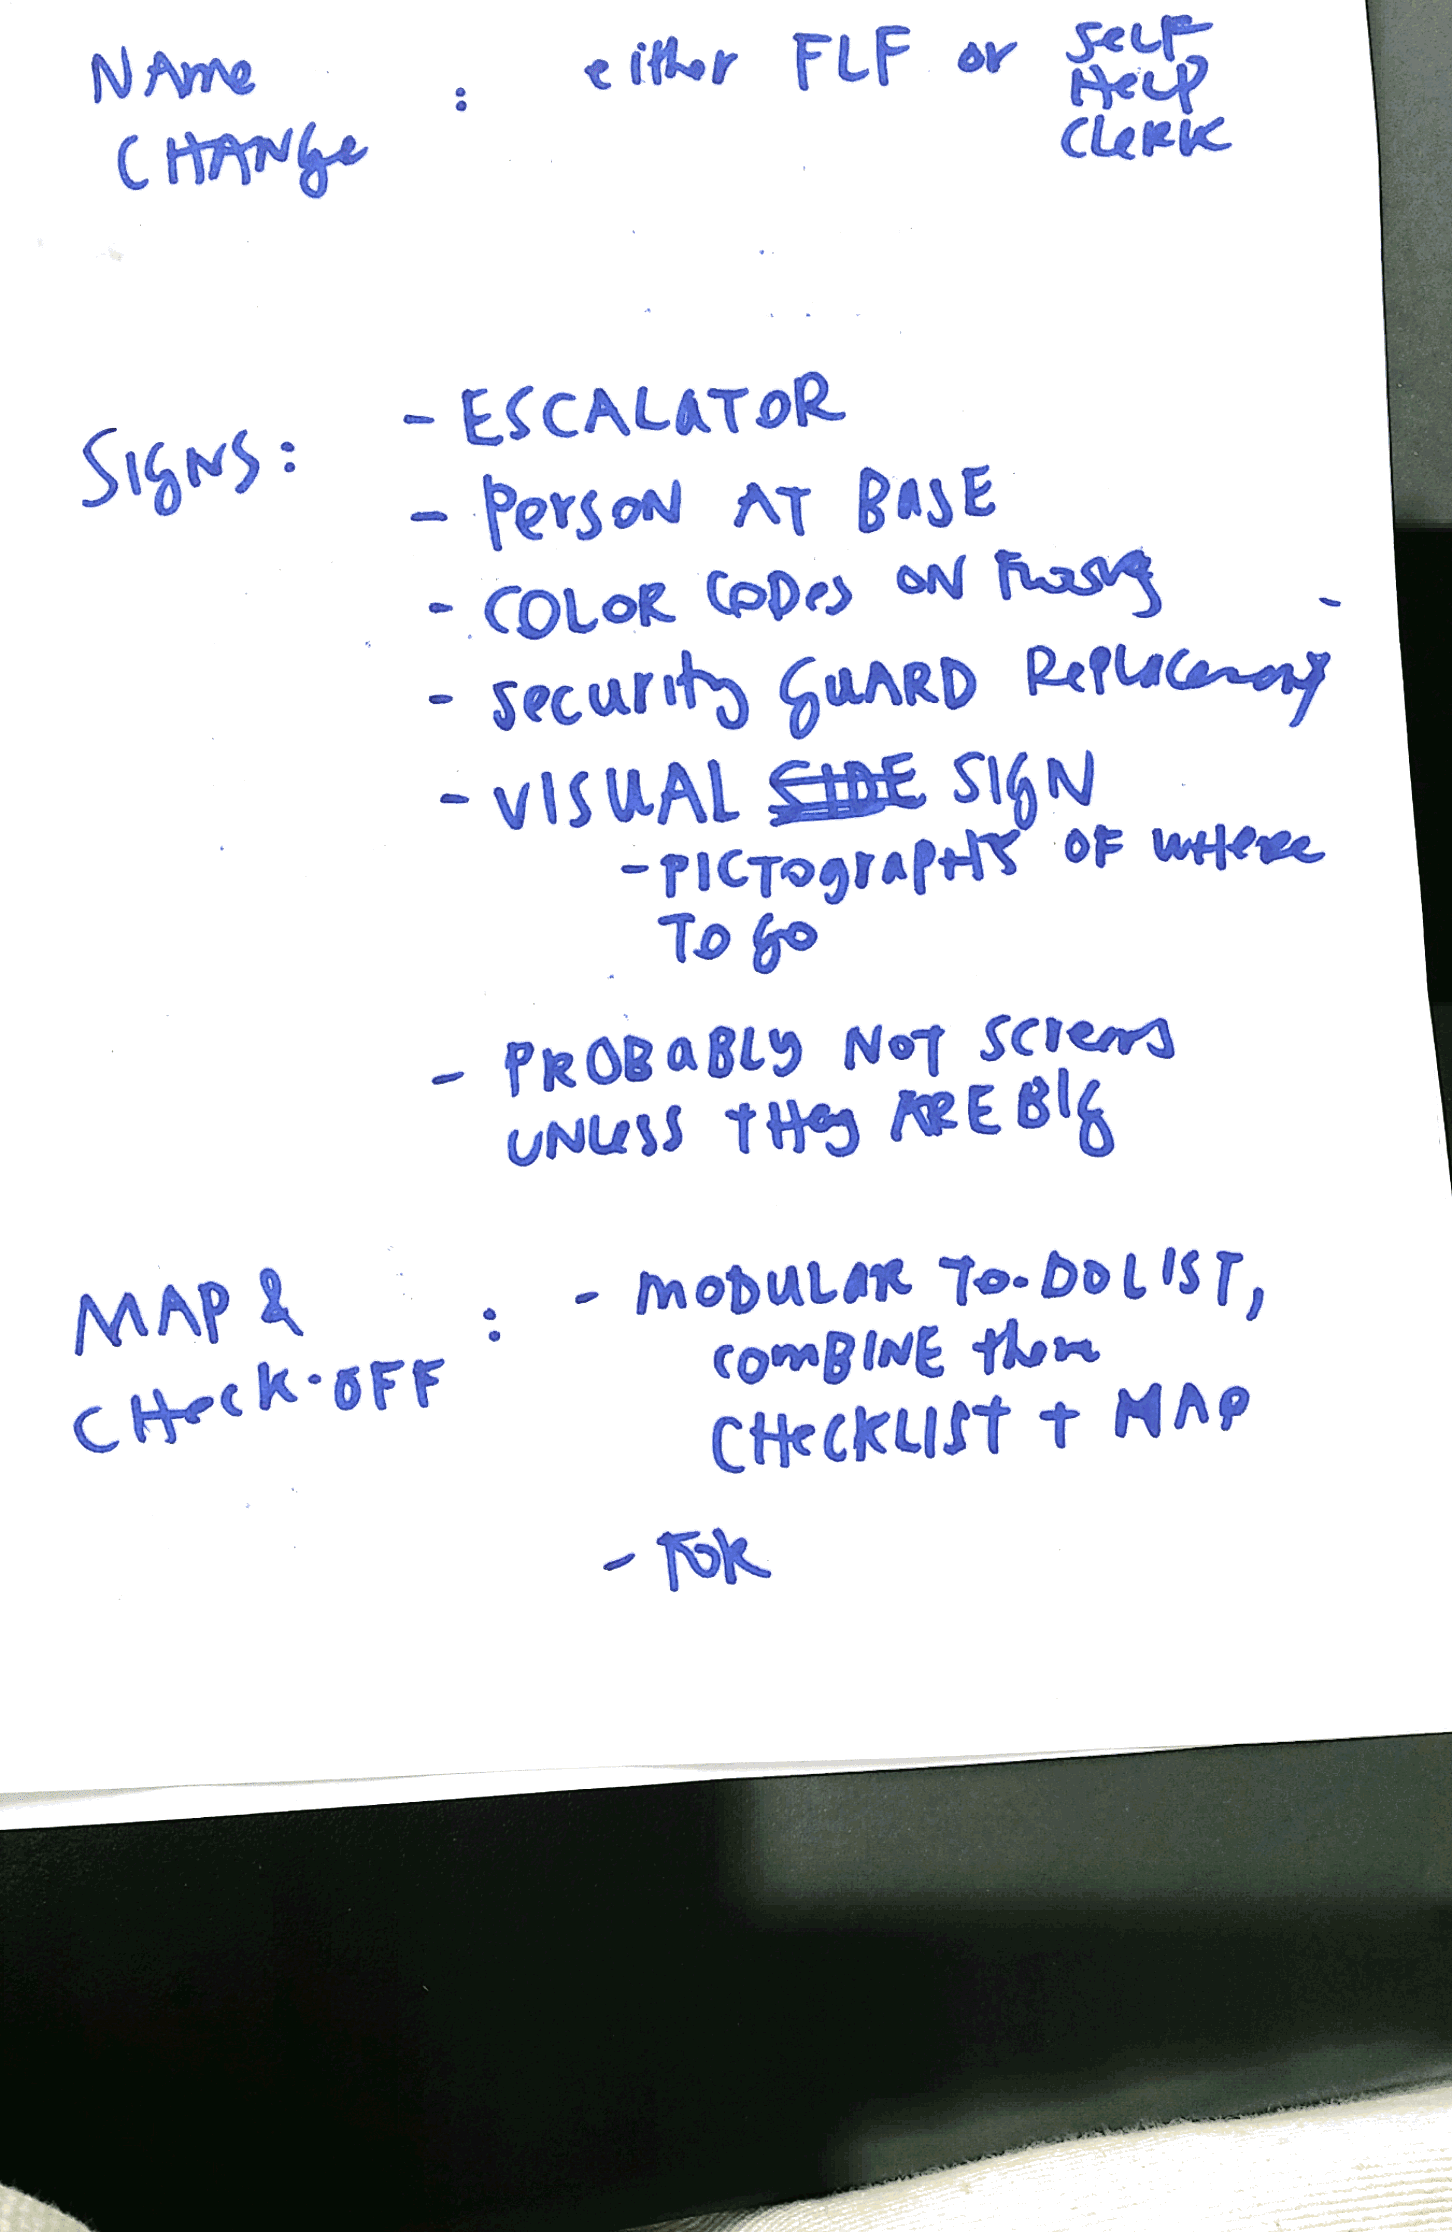 NAme
CHANge
: either FLF or Self
Help
Clerk
SIgNS:
- ESCALATOR
- Person AT BASE
- COLOR CODes ON
- security guARD Replacement
- VISUAL SIDE SIgN
- PICTographs OF where
To go
- PROBaBLy NoT screens
UNLess they ARE BIg
MAP &
CHeck-OFF
: - moDULAR To-DO LIST,
comBINE them
CHeCKLIST + MAP